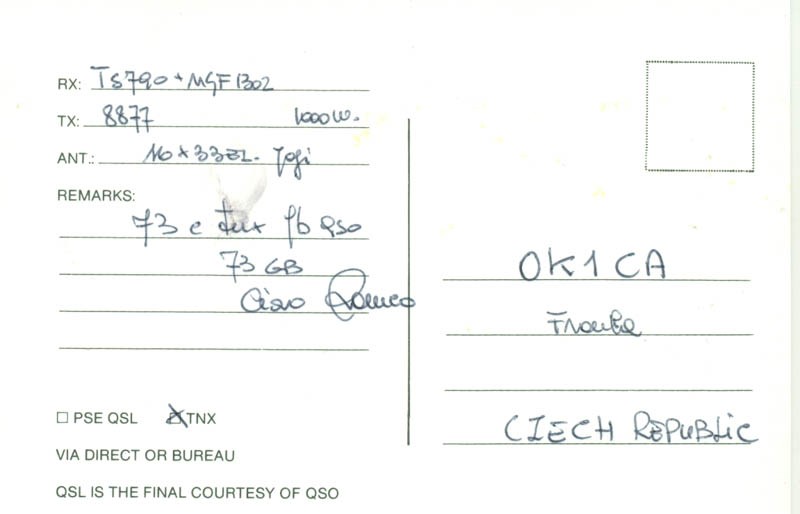 RX: TS790 + MGF1302
TX: 8877 1000W.
ANT.: 16 x 33EL. Yagi
REMARKS:
73 e tnx fb QSO
73 GB
Ciao Romeo
□ PSE QSL ☒ TNX
VIA DIRECT OR BUREAU
QSL IS THE FINAL COURTESY OF QSO
OK1CA
CIECH REPUBLIC